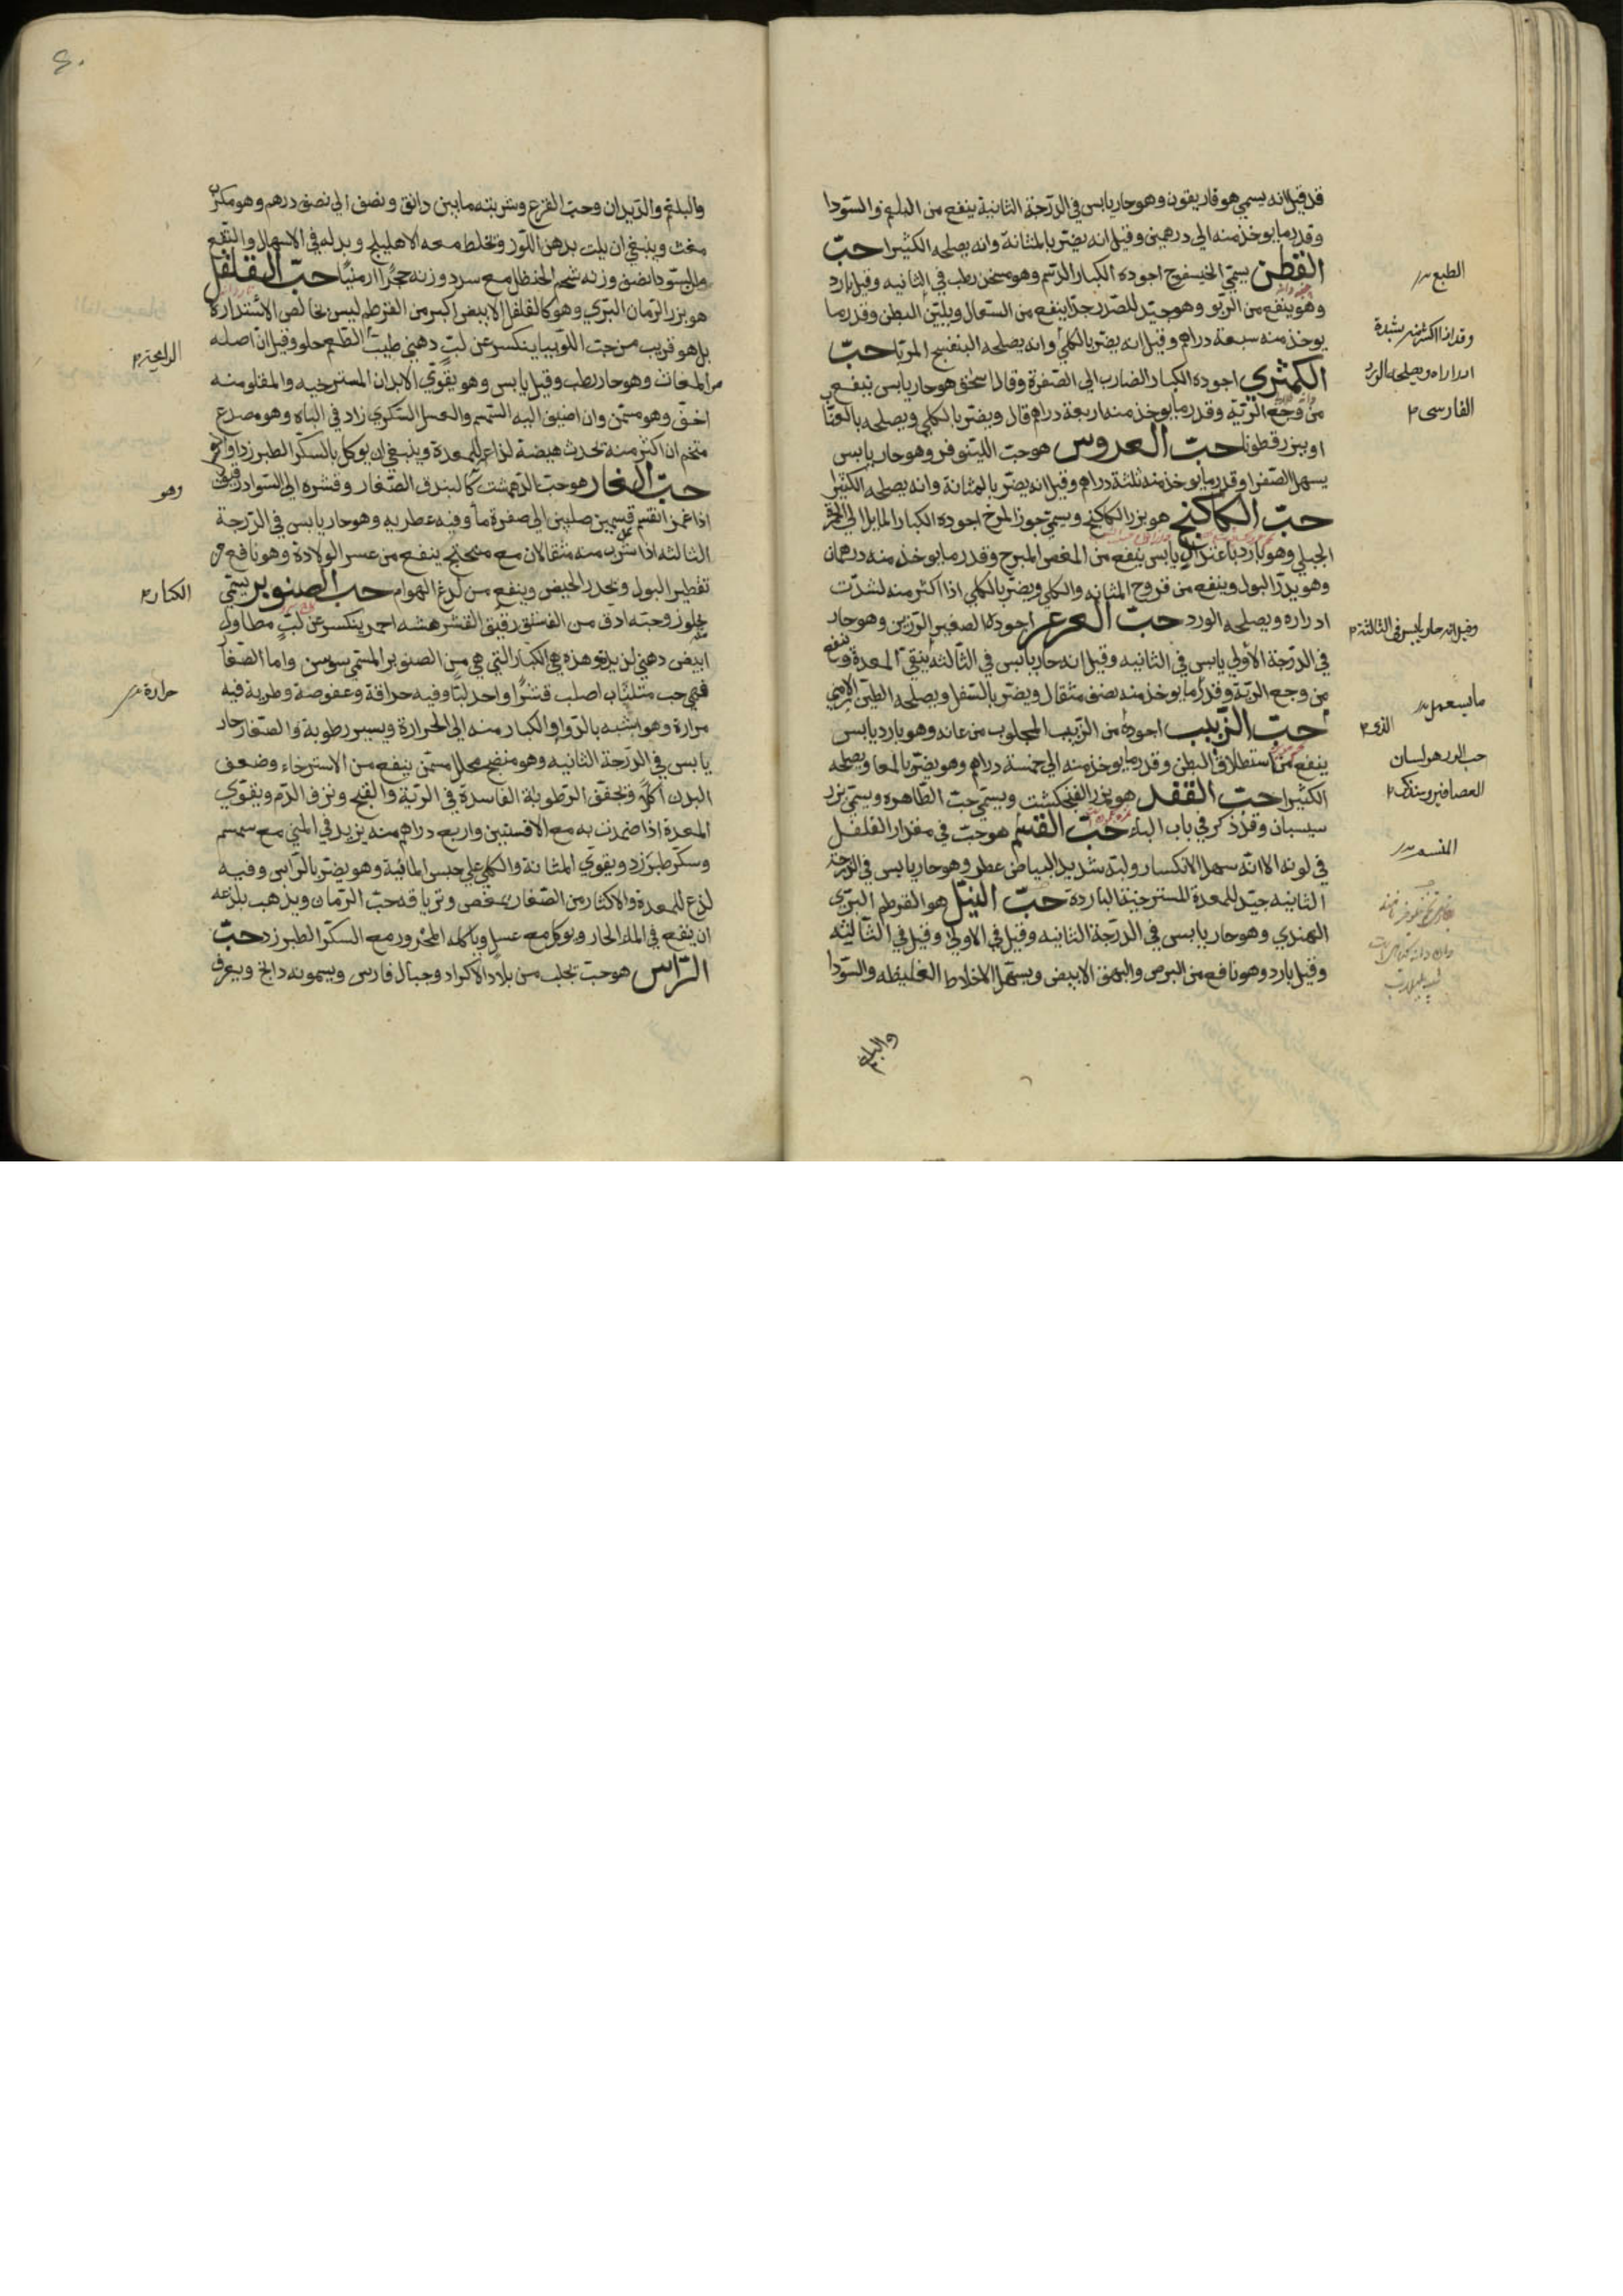 قد قيل انه يسمي هوفاريقون وهو حار يابس في الدرجة الثانية ينفع من البلغم والسودا
وقدر ما يوخذ منه الي درهمين وقيل انه يضر بالمثانة وانه يصلحه الكثيرا حبّ
القطن يسمّي الخيسفوج اجوده الكبار الدسم وهو مسخن رطب في الثانيه وقيل بارد
وهو ينفع من الربو وهو جيّد للصدر جدّا ينفع من السعال ويليّن البطن وقدر ما
يوخذ منه سبعة دراهم وقيل انه يضر بالكلي وانه يصلحه البنفسج المربّا حبّ
الكمثري اجوده الكبار الضارب الي الصّفرة وقال اسحق هو حار يابس ينفع
من وجع الريّة وقدر ما يوخذ منه اربعة دراهم قال ويضر بالكلي ويصلحه بالعنّا
او ببزر قطونا حبّ العروس هو حبّ اللينوفر وهو حار يابس
يسهل الصّفرا وقدر ما يوخذ منه ثلثة دراهم وقيل انه يضر بالمثانة وانه يصلحه الكثيرا
حبّ الكاكنج هو بزر الكاكنج ويسمّي جوز المرج اجوده الكبار المايل الي الحمرة
الجبلي وهو بارد باعتدال يابس ينفع من المغص المبرح وقدر ما يوخذ منه درهمان
وهو يدرّ البول وينفع من قروح المثانه والكلي ويضر بالكلي اذا اكثر منه لشدّت
ادراره ويصلحه الورد حبّ العرعر اجوده الصغير الرزين وهو حار
في الدرجة الاولي يابس في الثانيه وقيل انه حار يابس في الثالثه ينقي المعدة وينفع
من وجع الريّة وقدر ما يوخذ منه نصف مثقال ويضر بالسفل ويصلحه الطين الارمني
حبّ الزّبيب اجوده من الزبيب المجلوب من عانه وهو بارد يابس
ينفع من استطلاق البطن وقدر ما يوخذ منه الي خمسة دراهم وهو يضر بالمعا ويصلحه
الكثيرا حبّ الفقد هو بزر الفنجنكشت ويسمّي حبّ الطّاهره ويسمّي بزر
سيسبان وقد ذكر في باب الباء حبّ القسم هو حبّ في مقدار الفلفل
في لونه الا انه سهل الانكسار ولبّه شديد البياض عطر وهو حار يابس في الدرجة
الثانيه جيّد للمعدة المسترخية الباردة حبّ النيل هو القرطم البرّي
الهندي وهو حار يابس في الدرجة الثانيه وقيل في الاولي وقيل في الثّالثه
وقيل بارد وهو نافع من البرص والبهق الابيض ويسهل الاخلاط الغليظه والسّودا
والبلغم
الطبع
وقد اذا اكثر منه بشدة
ادراره ويصلحه الورد
الفارسي
وقيل انه حار يابس في الثالثة
ما يستعمل
الذي
حب الدر هو لسان
العصافير
والبلغم والديدان وحبّ القرع وشربته ما بين دانق ونصف الي نصف درهم وهو مكرب
مغث وينبغي ان يلت بدهن اللوز ويخلط معه الاهليلج وبدله في الاسهال والنفع
من السّودا نصف وزنه شحم الحنظل مع سدد وزنه حجرًا ارمنيّا حبّ القلقل
هو بزر الرمان البرّي وهو كالفلفل الابيض اكبر من القرطم ليس بخالص الاستدارة
بل هو قريب من حبّ اللوبيا ينكسر عن لبّ دهني طيب الطعم حلو وقيل ان اصله
من المغاث وهو حار رطب وقيل يابس وهو يقوّي الابدان المسترخيه والمقلو منه
اخفّ وهو مسمّن وان اضيف اليه السّمسم والعسل السّكري زاد في الباه وهو مصدع
متخم ان اكثر منه يحدث هيضة لذاع للمعدة وينبغي ان يوكل بالسكر الطبرزد
حبّ الغار هو حبّ الدهمشت كالبندق الصّغار وقشره الي السّواد رقيق
اذا غمز انقسم قسمين صلبين الي صفرة ما وفيه عطريه وهو حار يابس في الدرجة
الثالثه اذا شرب منه مثقالان مع ميبختج ينفع من عسر الولادة وهو نافع من
تقطير البول ويحدر الحيض وينفع من لدغ الهوام حب الصنوبر يسمّي
جلوز وحبّه ادق من الفستق رقيق القشر هشه احمر ينكسر عن لبّ مطاول
ابيض دهني لذيذ وهذه هي الكبار التي هي من الصنوبر المسمّي سوسن واما الصّغا
فهي حب مثلثات اصلب قشرًا واحد لبّا وفيه حرافة وعفوصة وطريه فيه
مرارة وهو اشبه بالدوا والكبار منه الي الحرارة ويسير رطوبة والصّغار حار
يابس في الدرجة الثانيه وهو منضج محلل مسمّن ينفع من الاسترخاء وضعف
البدن اكلًا ويجفف الرطوبة الفاسدة في الريّة والقيح ونزف الدّم ويقوّي
المعدة اذا ضمدت به مع الافسنتين واربع دراهم منه يزيد في المني مع سمسم
وسكّر طبرزد ويقوّي المثانة والكلي علي حبس المائية وهو يضر بالرّاس وفيه
لذع للمعدة والاكثار من الصّغار يمغص وترياقه حبّ الرّمان ويذهب بلذعه
ان ينقع في الماء الحار ويوكل مع عسل وياكله المحرور مع السكّر الطبرزد حبّ
الرّاس هو حبّ يجلب من بلاد الاكراد وجبال فارس ويسمونه دانج ويعرف
الرايحة
وهو
الكبار
حرارة